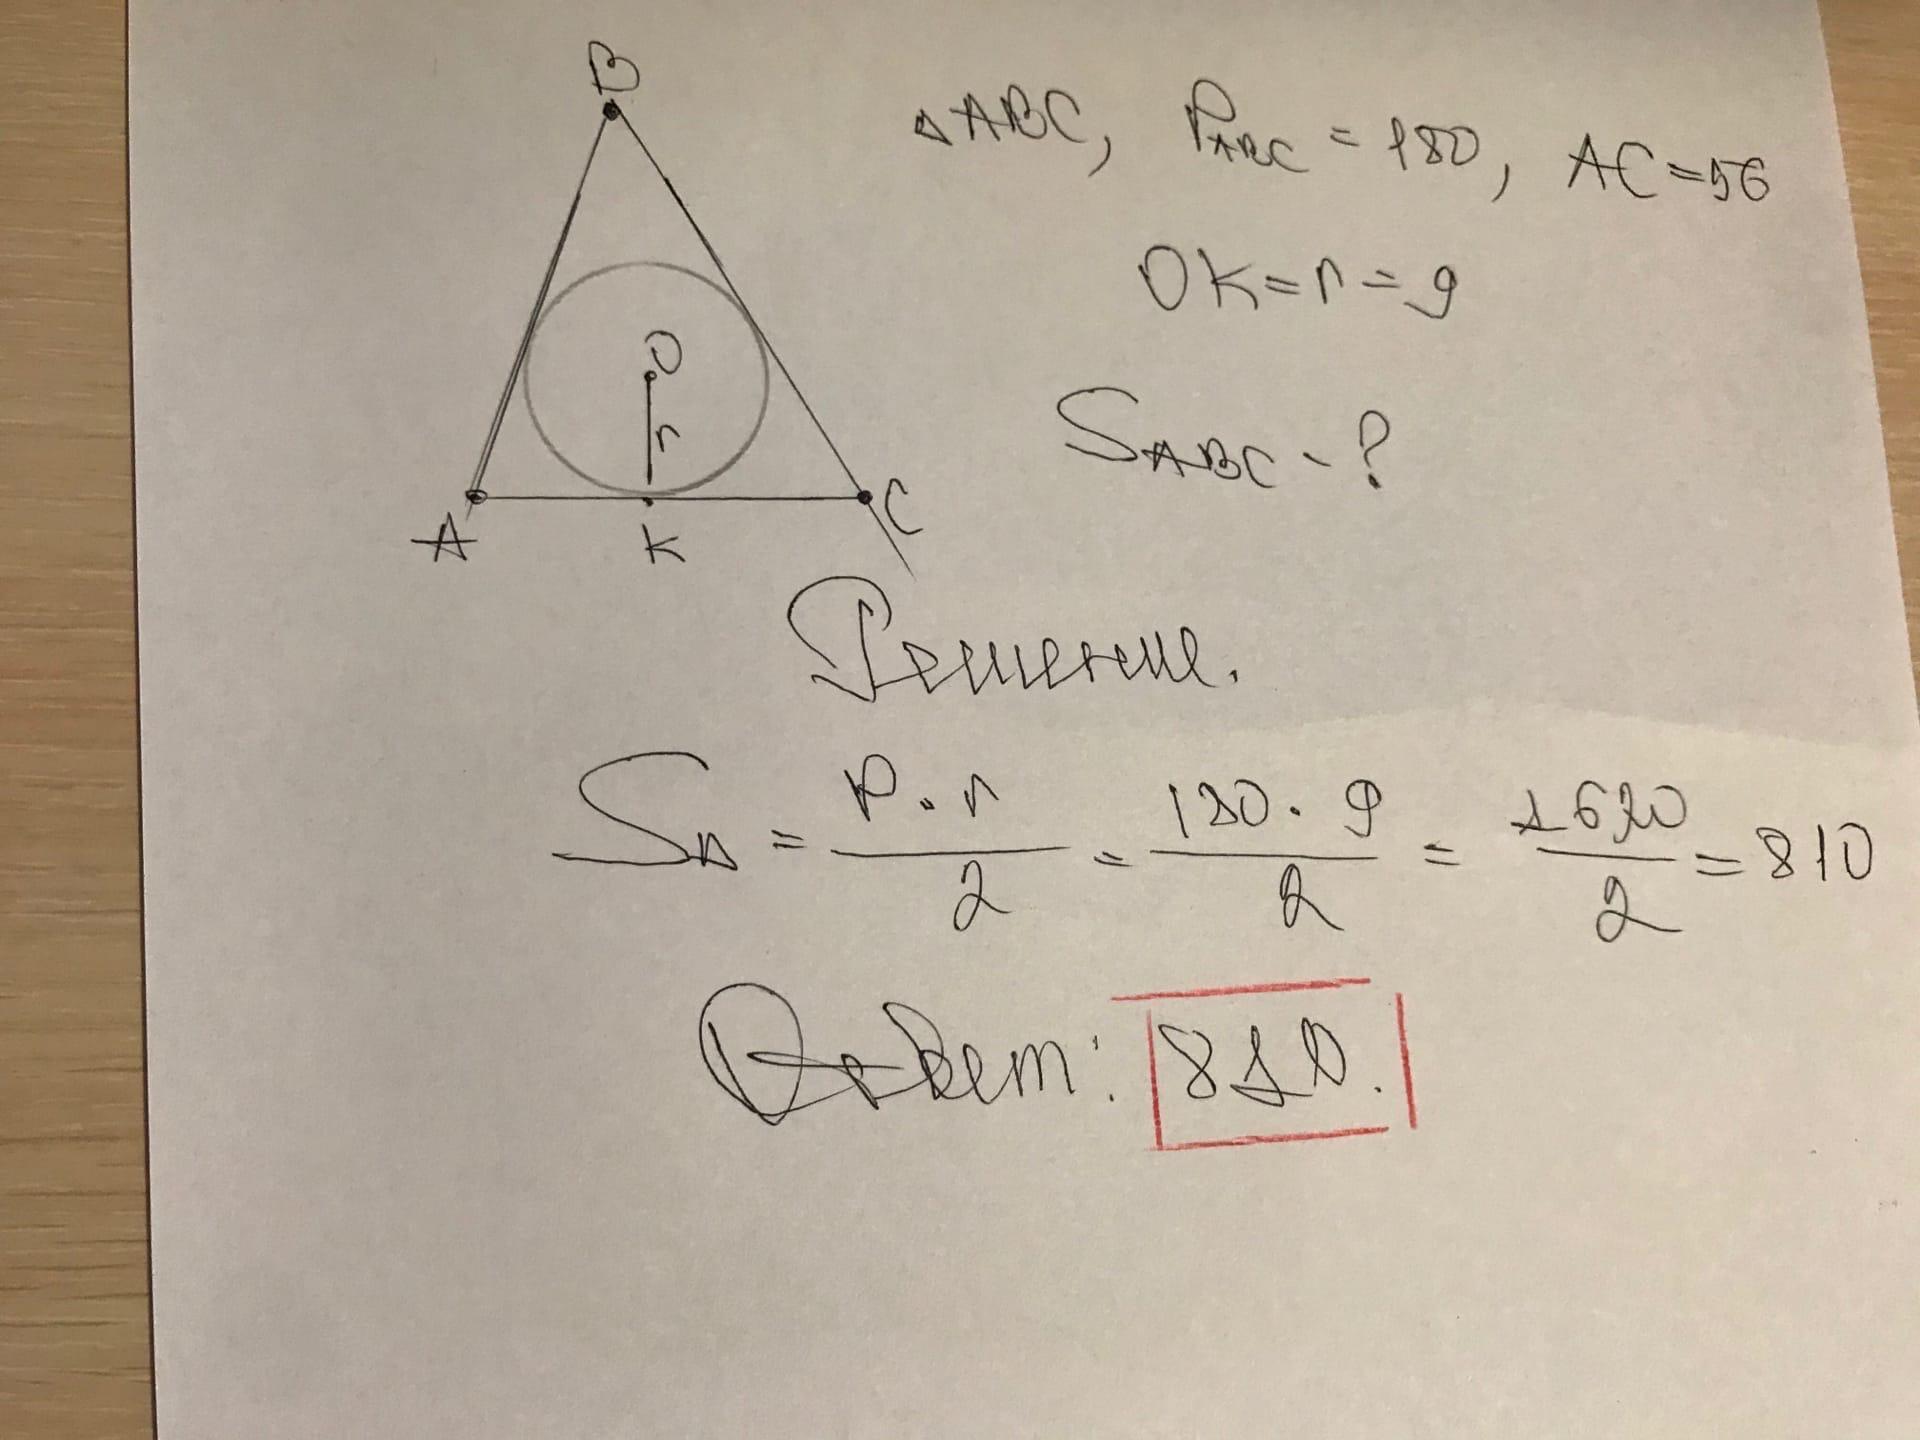 B
△ABC, P_ABC = 180, AC=56
OK=r=9
O
r
S_ABC - ?
A K C
Решение.
S_△ = P·r/2 = 180·9/2 = 1620/2 = 810
Ответ: 810.